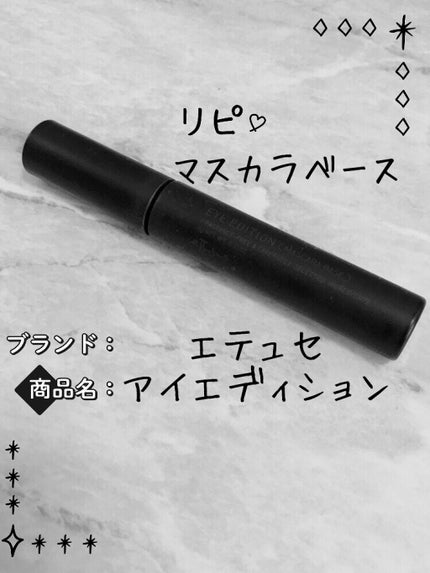 リピ♡
マスカラベース
EYE EDITION
ブランド： エテュセ
商品名：アイエディション